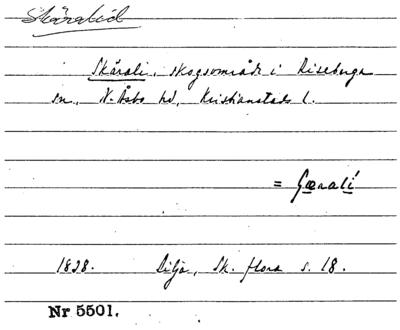 Skäralid
Skärali, skogsområde i Riseberga
sn, N. Åsbo hd, Kristianstads l.
= Gærali
1838. Lilja, Sk. flora s. 18.
Nr 5501.